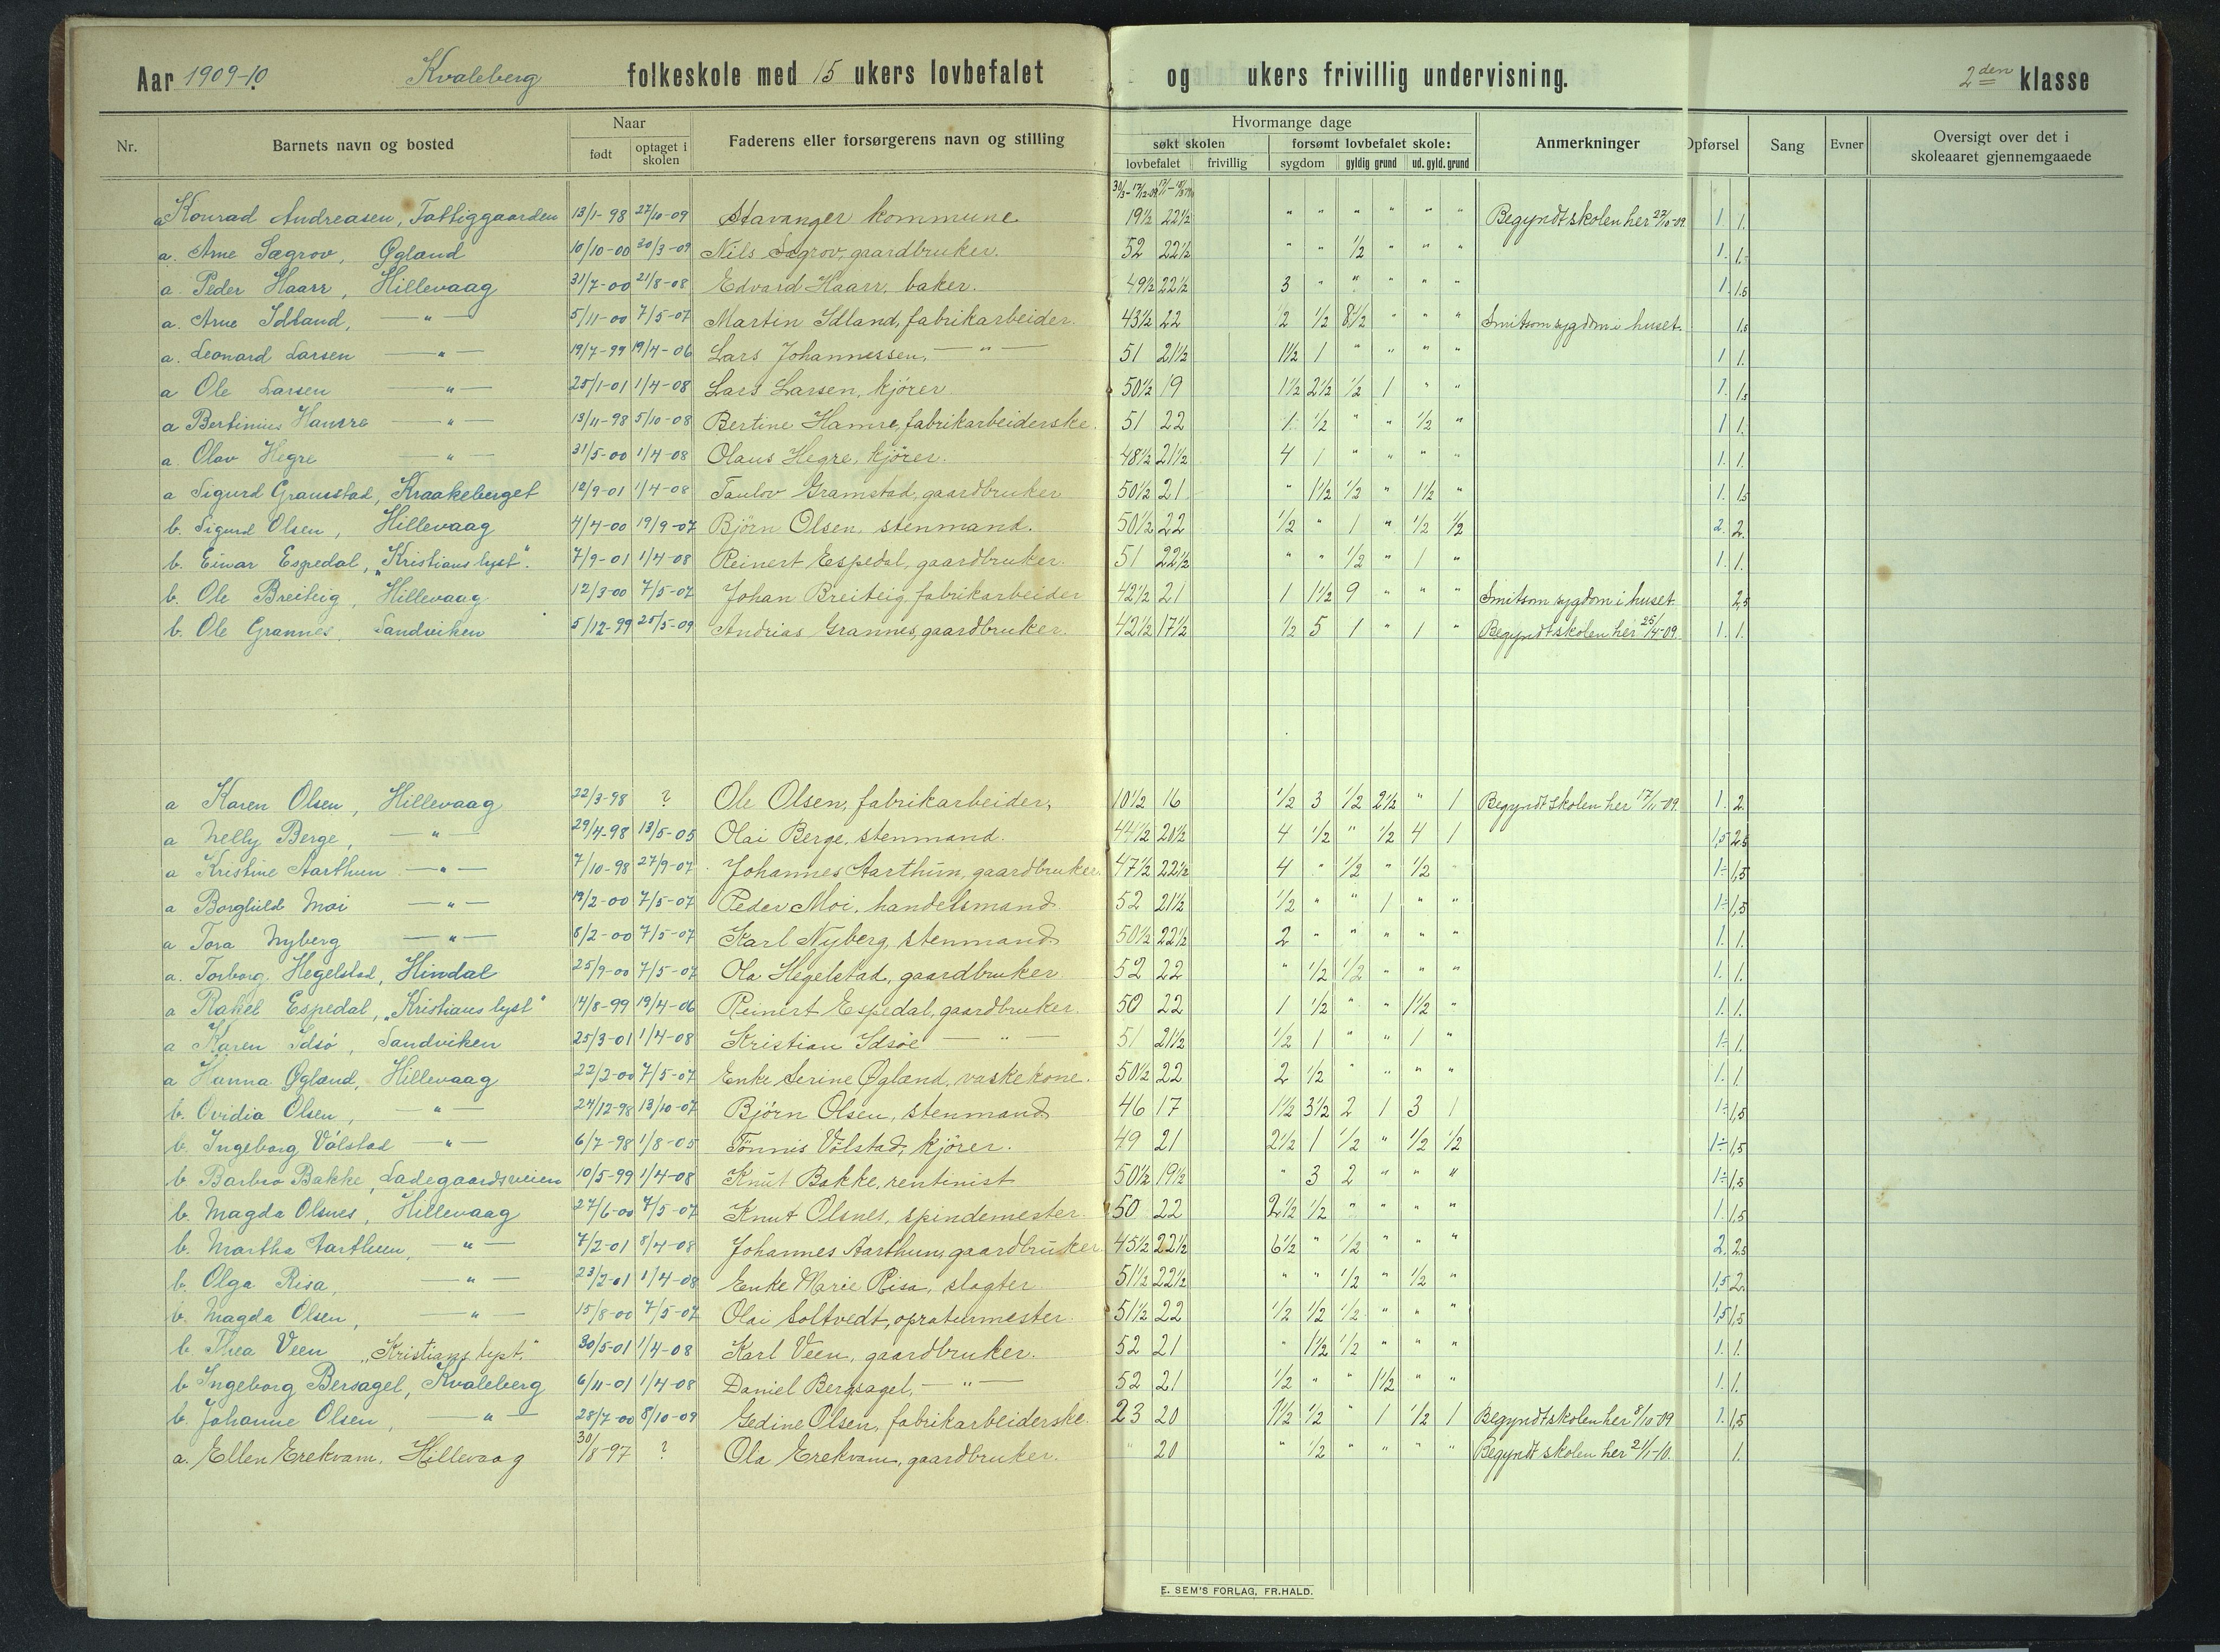 Aar 1909-10. Kvaleberg folkeskole med 15 ukers lovbefalet og ukers frivillig undervisning. 2den klasse
Nr. Barnets navn og bosted Naar Faderens eller forsørgerens navn og stilling Hvormange dage Anmerkninger Opførsel Sang Evner Oversigt over det i skoleaaret gjennemgaaede
født optaget i skolen søkt skolen forsømt lovbefalet skole:
lovbefalet frivillig sygdom gyldig grund ud. gyld. grund
a Konrad Andreasen, Fattiggaarden 13/1-98 27/10-09 Stavanger kommune 19½ 22½ " " " " " " Begyndt skolen her 27/10-09 1. 1.
a. Arne Sægrov, Øgland 10/10-00 30/3-09 Nils Sægrov, gaardbruker. 52 22½ " " ½ " " " 1. 1.
a. Peder Haarr, Hillevaag 31/7-00 21/8-08 Edvard Haarr, baker. 49½ 22½ 3 " " " " " 1. 1.5
a. Arne Idland, — " — 5/11-00 7/5-07 Martin Idland, fabrikarbeider. 43½ 22 ½ ½ 8½ " " " Smitsom sygdom i huset.
a. Leonard Larsen — " — 19/7-99 19/4-06 Lars Johannessen, — " — 51 21½ 1½ 1 " " " " 1 1.
a Ole Larsen — " — 25/1-01 1/4-08 Lars Larsen, kjörer 50½ 19 1½ 2½ ½ 1 " " 1.
a Bertinius Hamre — " — 13/11-98 5/10-08 Bertine Hamre, fabrikarbeiderske. 51 22 1 ½ " " ½ " 1 1.
a. Olav Hegre — " — 31/5-00 1/4-08 Olaus Hegre, kjörer. 48½ 21½ 4 1 " " " " 1. 1.
a Sigurd Gramstad, Kraakeberget 12/9-01 1/4-08 Taulov Gramstad, gaardbruker 50½ 21 " 1½ ½ " 1½ " 1.
b. Sigurd Olsen, Hillevaag 4/4-00 19/9-07 Björn Olsen, stenmand. 50½ 22 ½ " 1 " ½ ½ 2. 2.
b. Einar Espedal, "Kristians lyst". 7/9-01 1/4-08 Reinert Espedal, gaardbruker. 51 22½ " " ½ " 1 " 1. 1.
b. Ole Breiteig, Hillevaag 12/3-00 7/5-07 Johan Breiteig, fabrikarbeider 42½ 21 1 1½ 9 " " " Smitsom sygdom i huset. 2,5
b. Ole Grannes, Sandviken 5/12-99 25/5-09 Andrias Grannes, gaardbruker. 42½ 17½ ½ 5 1 " 1 " Begyndt skolen her 25/4-09. 1. 1.
a Karen Olsen, Hillevaag 22/3-98 ? Ole Olsen, fabrikarbeider, 10½ 16 ½ 3 ½ 2½ " 1 Begyndt skolen her 17/11-09. 1. 2.
a Nelly Berge, — " — 29/4-98 13/5-05 Olai Berge, stenmand. 44½ 20½ 4 ½ " ½ 4 1 1,5 2,5
a Kristine Aarthun — " — 7/10-98 27/9-07 Johannes Aarthun, gaardbruker. 47½ 22½ 4 " ½ " ½ 1÷ 1,5
a Borghild Moi — " — 19/2-00 7/5-07 Peder Moi, handelsmand. 52 21½ ½ " " 1 " " 1÷ 1,5
a Tora Nyberg — " — 8/2-00 7/5-07 Karl Nyberg, stenmand 50½ 22½ 2 " " " " " 1. 1.
a. Torborg Hegelstad, Hindal 25/9-00 7/5-07 Ola Hegelstad, gaardbruker 52 22 " ½ ½ " " " 1. 1.
a Rakel Espedal, "Kristians lyst" 14/8-99 19/4-06 Reinert Espedal, gaardbruker. 50 22 1 ½ " " 1½ " 1. 1.
a Karen Idsö, Sandviken 25/3-01 1/4-08 Kristian Idsöe — " — 51 21½ ½ 1 " " 1 " 1÷ 1.
a Hanna Øgland, Hillevaag 22/2-00 7/5-07 Enke Serine Øgland, vaskekone. 50½ 22 2 ½ " " " " 1. 1.
b. Ovidia Olsen, — " — 24/12-98 13/10-07 Björn Olsen, stenmand 46 17 1½ 3½ 2 1 3 1 1÷ 1,5
b. Ingeborg Völstad — " — 6/7-98 1/8-05 Tönnes Völstad, kjörer. 49 21 2½ 1 ½ " ½ ½ 1÷ 1,5
b Barbro Bakke, Ladegaardsveien 10/5-99 1/4-08 Knut Bakke, rentenist 50½ 19½ " 3 2 " " " 1÷ 1,5
b. Magda Olsnes, Hillevaag 27/6-00 7/5-07 Knut Olsnes, spindemester. 50 22 2½ ½ " " " " 1. 1,5
b. Martha Aarthun, — " — 7/2-01 8/4-08 Johannes Aarthun, gaardbruker. 45½ 22½ 6½ " ½ " " " 2. 2,5
b. Olga Risa, — " — 23/2-01 1/4-08 Enke Marie Risa, slagter 51½ 22½ " " ½ " ½ " 1,5 2.
b. Magda Olsen, — " — 15/8-00 7/5-07 Olai Soltvedt, opratermester. 51½ 22 ½ ½ ½ " " " 1,5 1,5
b. Thea Veen "Kristians lyst." 30/5-01 1/4-08 Karl Veen, gaardbruker. 52 21 " 1½ ½ " " " 1. 1.
b Ingeborg Bersagel, Kvaleberg 6/11-01 1/4-08 Daniel Bergsagel, — " — 52 21 ½ " " 1½ " " 1. 1.
b. Johanne Olsen, — " — 28/7-00 8/10-09 Gedine Olsen, fabrikarbeiderske. 23 20 1½ ½ " 1 ½ 1 Begyndt skolen her 8/10-09 1. 1,5
a. Ellen Erekvam, Hillevaag 30/8-97 ? Ola Erekvam, gaardbruker. " 20 " ½ " " " " Begyndt skolen her 21/1-10. 1.
E. SEM'S FORLAG, FR.HALD.